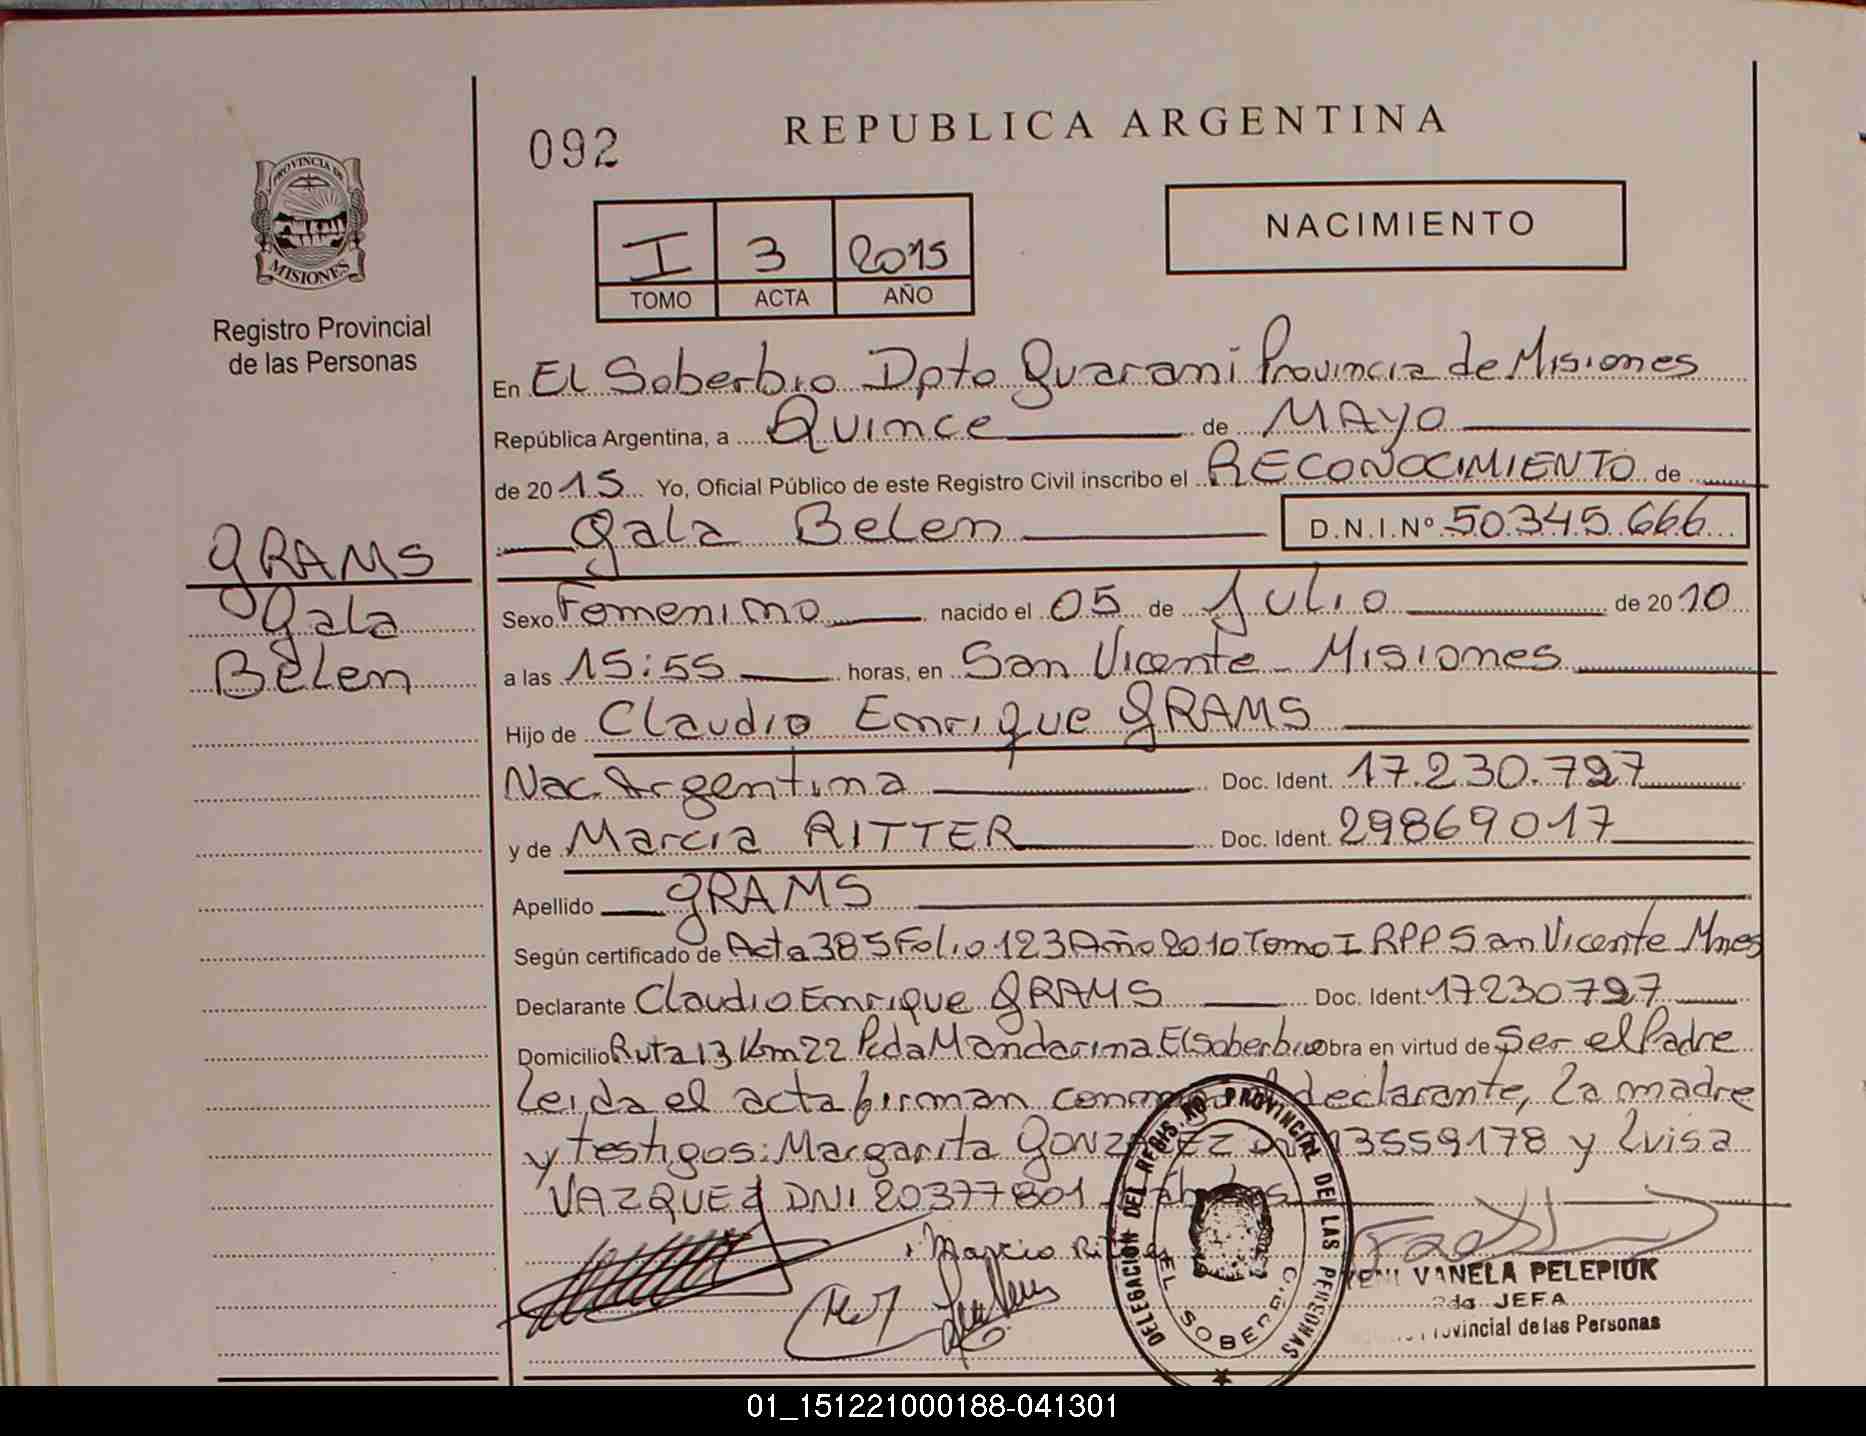 092
REPUBLICA ARGENTINA
PROVINCIA DE
MISIONES
Registro Provincial
de las Personas
I 3 2015
TOMO ACTA AÑO
NACIMIENTO
En El Soberbio Dpto Guarani Provincia de Misiones
República Argentina, a Quince de MAYO
de 2015 Yo, Oficial Público de este Registro Civil inscribo el RECONOCIMIENTO de
Gala Belen D.N.I.Nº 50.345.666
GRAMS
Gala
Belen
Sexo Femenino nacido el 05 de Julio de 2010
a las 15:55 horas, en San Vicente - Misiones
Hijo de Claudio Enrique GRAMS
Nac. Argentina Doc. Ident. 17.230.797
y de Marcia RITTER Doc. Ident. 29869017
Apellido GRAMS
Según certificado de Acta 385 Folio 123 Año 2010 Tomo I RPP San Vicente Mnes
Declarante Claudio Enrique GRAMS Doc. Ident. 17230797
Domicilio Ruta 13 Km 22 Pcda Mandarina El Soberbio obra en virtud de Ser el Padre
Leida el acta firman conmigo el declarante, la madre
y testigos: Margarita GONZALEZ DNI 13559178 y Luisa
VAZQUEZ DNI 20377801
Marcia Ritter
DELEGACIÓN DEL REGISTRO PROVINCIAL DE LAS PERSONAS
EL SOBERBIO
YENI VANELA PELEPIUK
2da JEFA
Provincial de las Personas
01_151221000188-041301